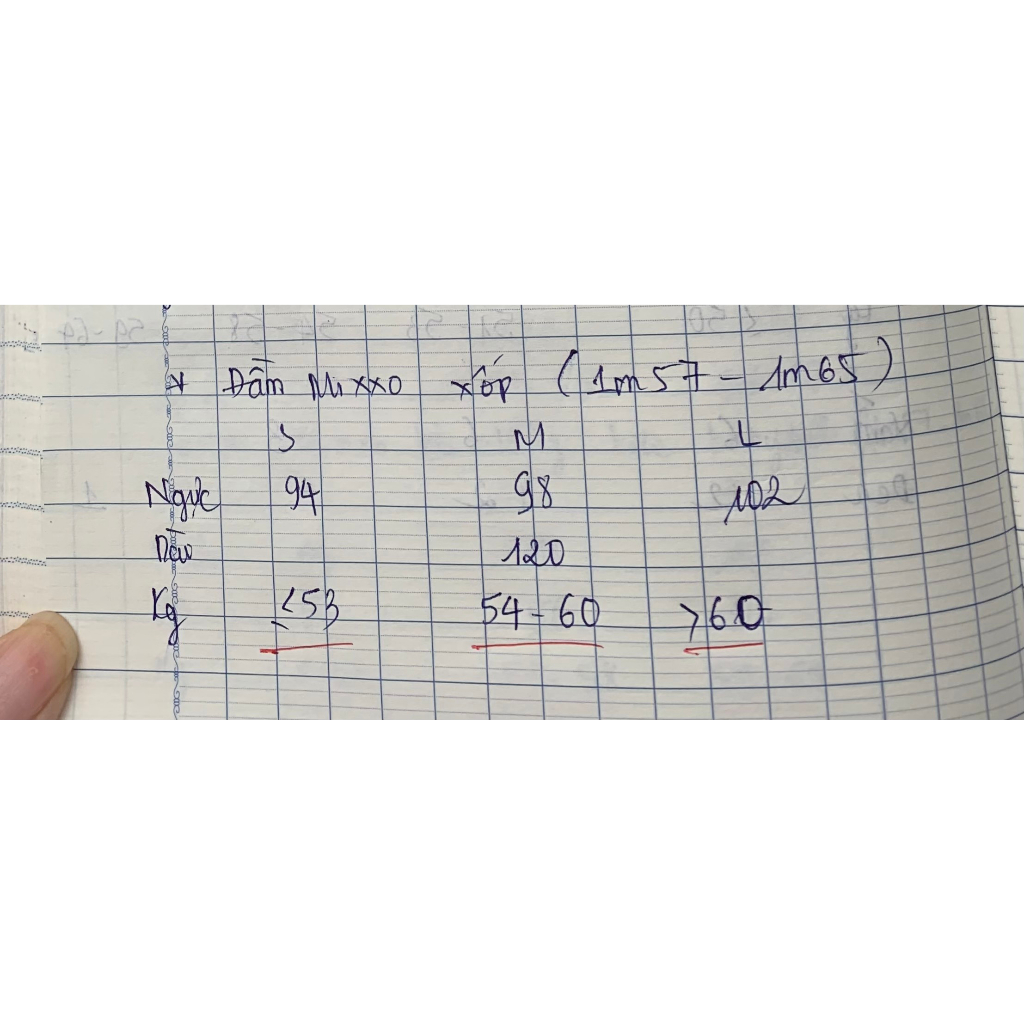 * Đầm Mixxo xốp (1m57 - 1m65)
S M L
Ngực 94 98 102
Dài 120
Kg ≤53 54-60 >60